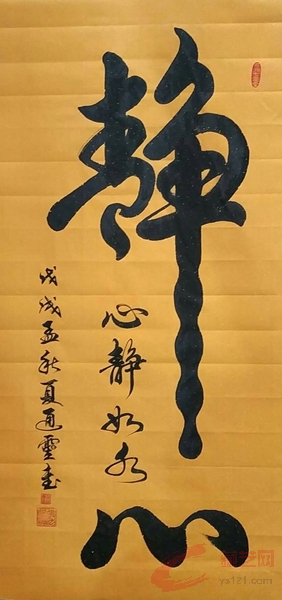 静心
心静如水
戊戌孟秋夏通靈書
ys121.com